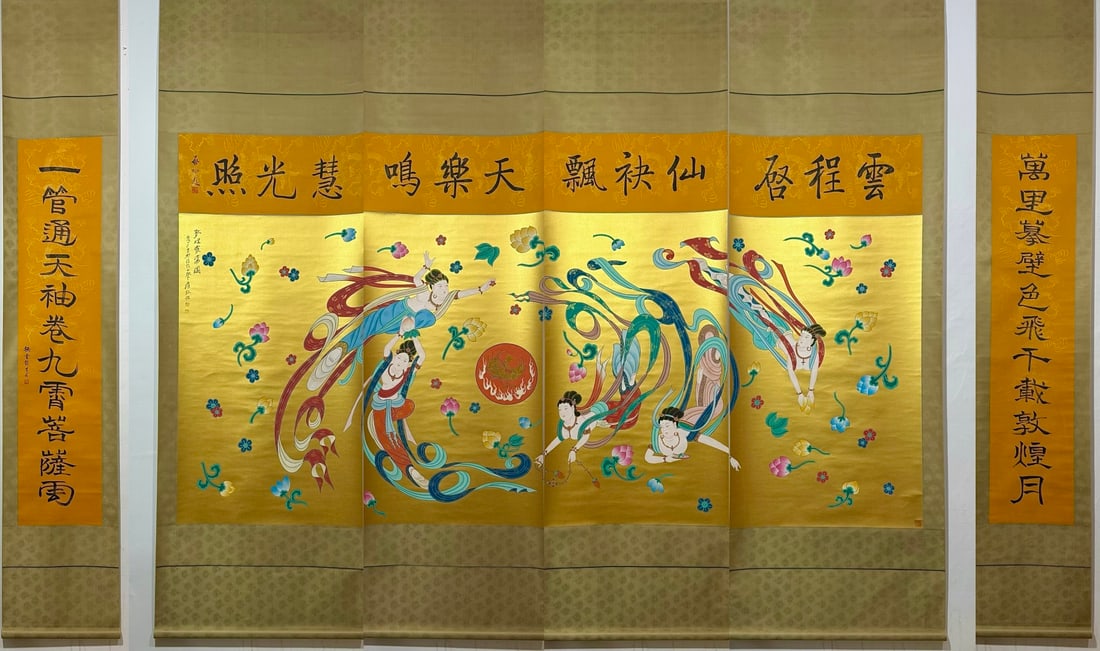 萬里摹壁色飛千載敦煌月
雲程启
仙袂飄
天樂鳴
慧光照
一管通天袖卷九霄菩薩雨